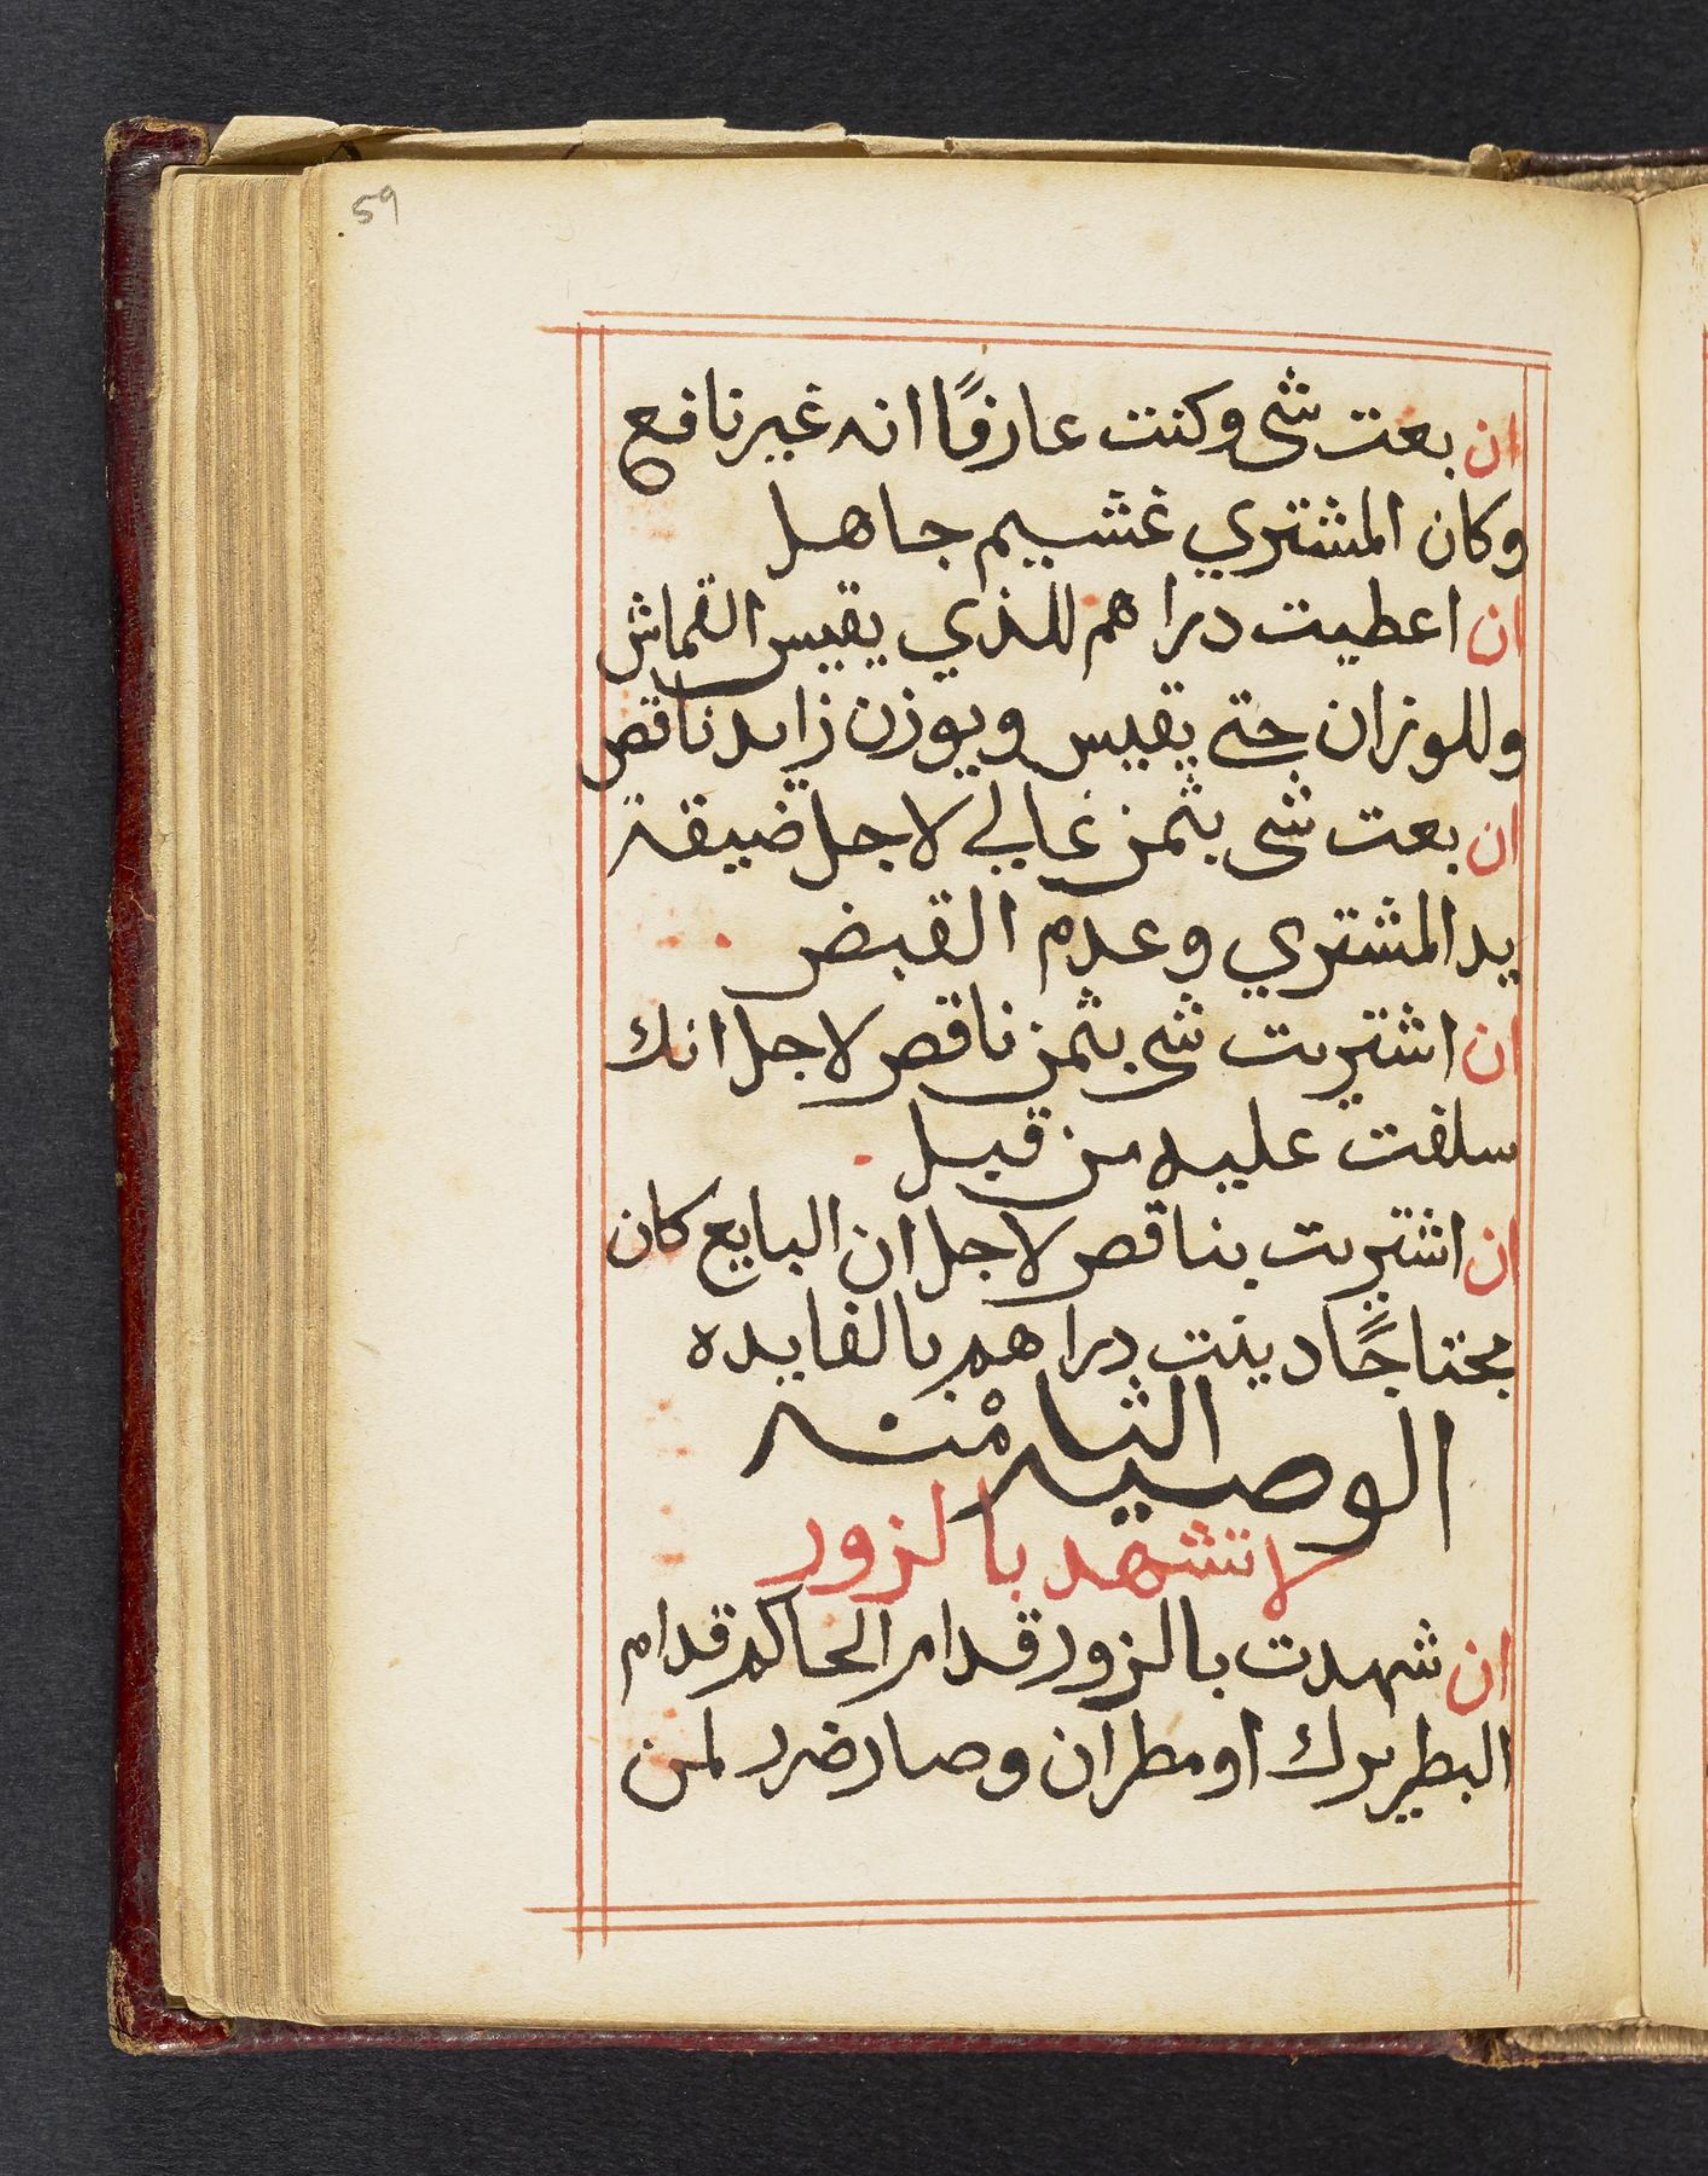 59
ان بعت شى وكنت عارفًا انه غير نافع
وكان المشتري غشيم جاهل
ان اعطيت دراهم للذي يقيس القماش
وللوزان حتى يقيس ويوزن زايد ناقص
ان بعت شى بثمن غالي لاجل ضيقة
يد المشتري وعدم القبض
ان اشتريت شى بثمن ناقص لاجل انك
سلفت عليه من قبل
ان اشتريت بناقص لاجل ان البايع كان
محتاجًا دينت دراهم بالفايده
الوصيه الثامنه
لا تشهد بالزور
ان شهدت بالزور قدام الحاكم قدام
البطريرك او مطران وصار ضرر لمن